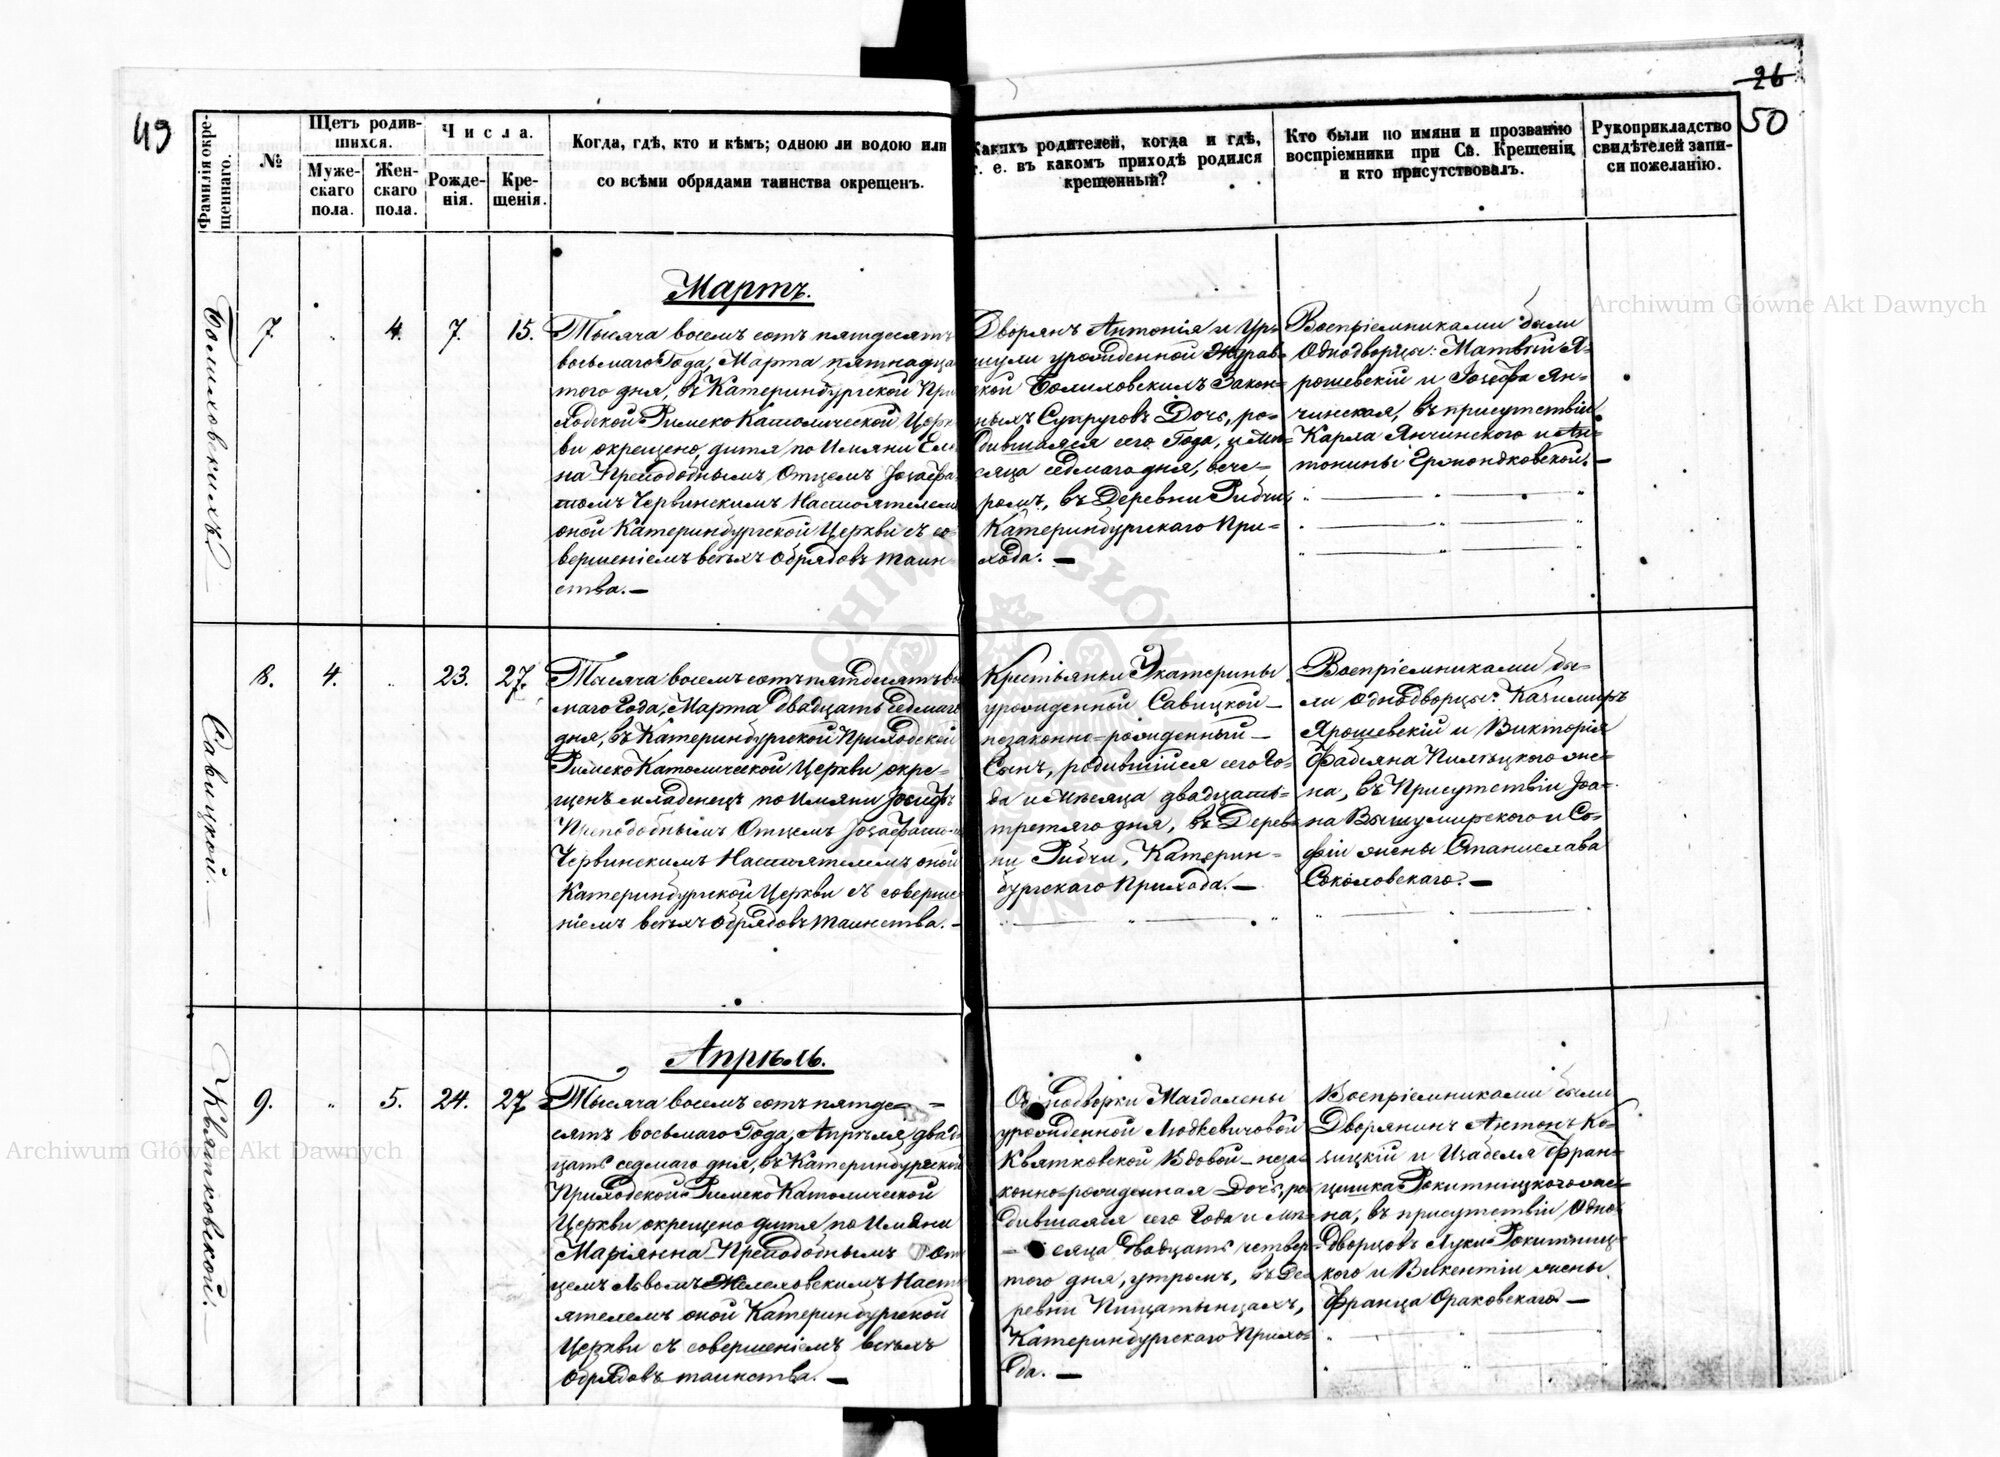 49
26
50
Фамилія окре-
щеннаго.
№
Щетъ родив-
шихся.
Муже-
скаго
пола.
Жен-
скаго
пола.
Числа.
Рожде-
нія.
Кре-
щенія.
Когда, гдѣ, кто и кѣмъ; одною ли водою или
со всѣми обрядами таинства окрещенъ.
Какихъ родителей, когда и гдѣ,
т. е. въ какомъ приходѣ родился
крещенный?
Кто были по имяни и прозванію
воспріемники при Св. Крещеніи
и кто присутствовалъ.
Рукоприкладство
свидѣтелей запи-
си пожеланію.
Мартъ.
7. 4. 7. 15.
Тысяча восемъ сотъ пятдесятъ
восьмаго Года, Марта пятнадца
того дня, въ Катеринбургской При
ходской Римско Католической Церк
ви окрещено, дитя по Имяни Еле
на Преподобнымъ Отцемъ Іозафа
томъ Червинскимъ Настоятелемъ
оной Катеринбургской Церкви съ со
вершеніемъ всѣхъ Обрядовъ таин
ства.—
Дворянъ Антонія и Ур-
шули урожденной
Закон-
ныхъ Супруговъ Дочь, ро-
дившаяся сего Года, и Мѣ-
сяца седмаго дня, вече-
ромъ, въ Деревни Рибчи
Катеринбургскаго При-
хода.—
Воспріемниками были
Однодворцы: Матвѣй Я-
рошевскій и Іозефа Ян-
чинская, въ присутствіи
Карла Янчинского и Ан-
тонины
Савицкой.—
8. 4. 23. 27.
Тысяча восемъ сотъ пятдесятъ во
смаго Года, Марта двадцать седмаго
дня, въ Катеринбургской Приходской
Римско Католической Церкви окре-
щенъ младенецъ по Имяни Іосифъ
Преподобнымъ Отцемъ Іозафатомъ
Червинскимъ Настоятелемъ оной
Катеринбургской Церкви съ соверше
ніемъ всѣхъ Обрядовъ таинства.—
Крестьянки Екатерины
урожденной Савицкой—
незаконно-рожденный—
Сынъ, родившійся сего Го-
да и Мѣсяца двадцать-
третяго дня, въ Дерев-
ни Рибчи, Катерин-
бургскаго Прихода.—
Воспріемниками бы-
ли Однодворцы: Казимиръ
Ярошевскій и Викторія
Фабіяна Пилецкого же-
на, въ Присутствіи Іоа-
на Вышумирского и Со-
фіи жены Станислава
Соколовскаго.—
Апрѣль.
Квятковской.—
9. 5. 24. 27
Тысяча восемъ сотъ пятде-
сятъ восьмаго Года, Апрѣля двад
цать седмаго дня, въ Катеринбургской
Приходской Римско Католической
Церкви окрещено дитя по Имяни
Маріянна Преподобнымъ От
цемъ Львомъ Желеховскимъ Насто
ятелемъ оной Катеринбургской
Церкви съ совершеніемъ всѣхъ
Обрядовъ таинства.—
Однодворки Магдалены
урожденной Людкевичовой
Квятковской Вдовой—неза-
конно-рожденная Дочь, ро-
дившаяся сего Года и Мѣ-
сяца двадцать четвер-
того дня, утромъ, въ Де-
ревни Пищатынцахъ,
Катеринбургскаго Прихо-
да.—
Воспріемниками были
Дворянинъ Антонъ Ко-
зицкій и Изабелла Фран-
цишка Рокитницкого же-
на, въ присутствіи Одно-
дворцовъ Луки Рокитниц-
кого и Викентіи жены
Франца Ораковскаго—
Archiwum Główne Akt Dawnych
Archiwum Główne Akt Dawnych